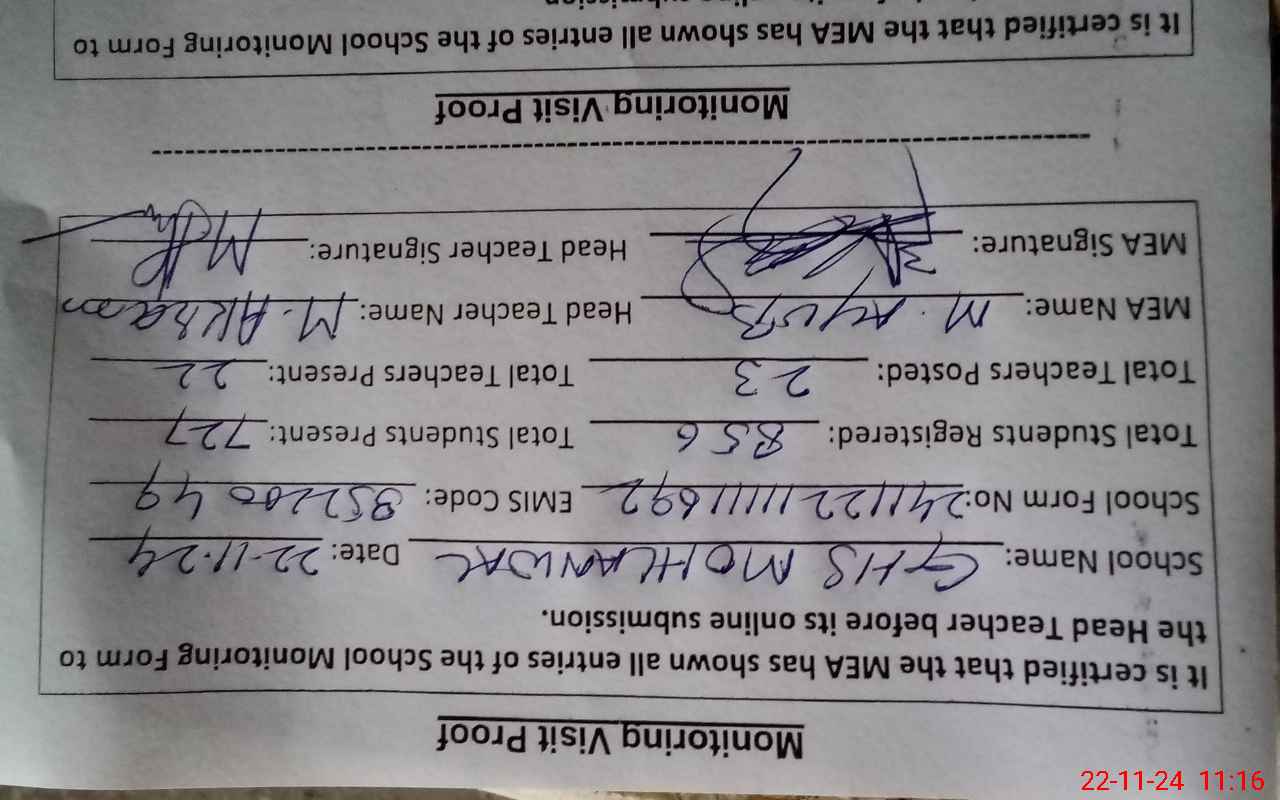 Monitoring Visit Proof
It is certified that the MEA has shown all entries of the School Monitoring Form to
the Head Teacher before its online submission.
School Name: GHS MOHLANWAL Date: 22-11-24
School Form No: EMIS Code: 35220049
Total Students Registered: 856 Total Students Present: 727
Total Teachers Posted: 23 Total Teachers Present: 22
MEA Name: M. Ayub Head Teacher Name: M. Akram
MEA Signature: Head Teacher Signature:
Monitoring Visit Proof
It is certified that the MEA has shown all entries of the School Monitoring Form to
22-11-24 11:16